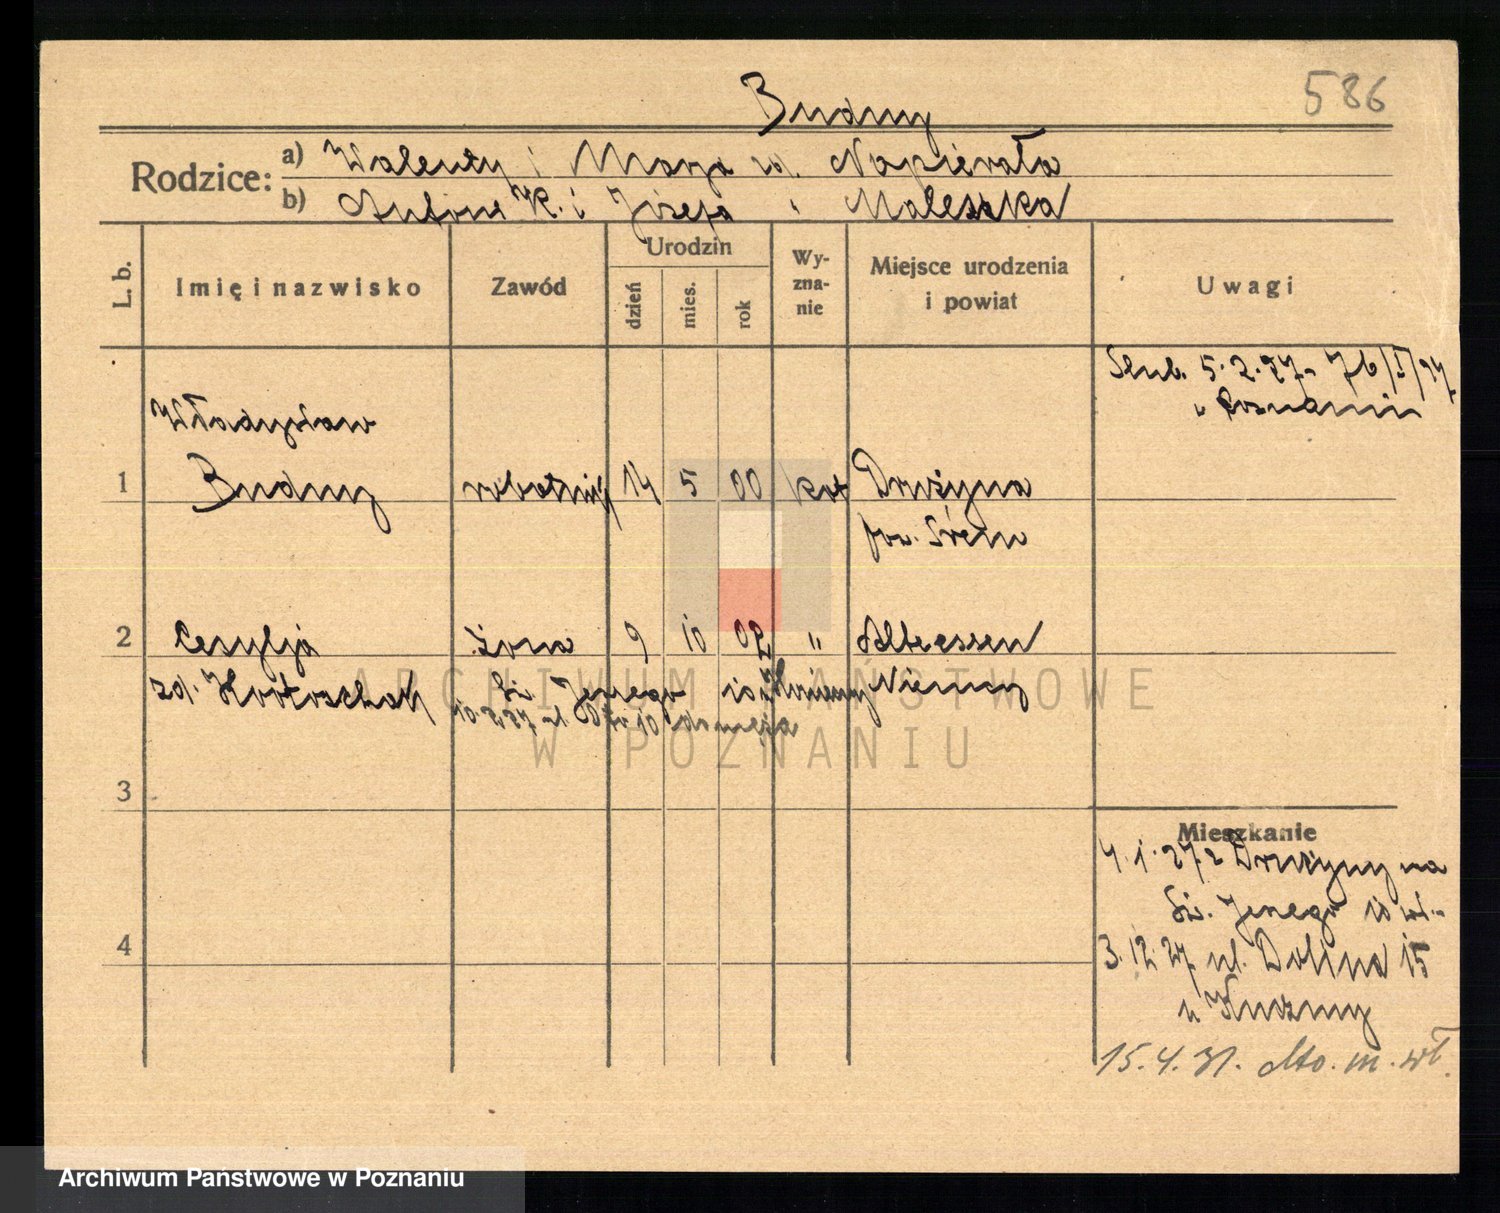 586
Budny
Rodzice: a) Walenty i Marja zd. Napierała
b) Antoni K. i Józefa " Maleszka
L. b. Imię i nazwisko Zawód Urodzin dzień mies. rok Wy-zna-nie Miejsce urodzenia i powiat Uwagi
Ślub. 5.2.27 76/I/27
w Poznaniu
Władysław
1 Budny robotnik 14 5 00 kat Drużyna
pow. Śrem
2 Cecylja żona 9 10 02 " Altenessen
zd. Niemcy
Św. Jerzego 10
10.8.27 ul.
3
Mieszkanie
4.1.27 z Drużyny na
Św. Jerzego 10
4
3.12.27 ul. Dolina 15
u Kuzmy
15.4.31. dto. m. wł.
ARCHIWUM PAŃSTWOWE
W POZNANIU
Archiwum Państwowe w Poznaniu